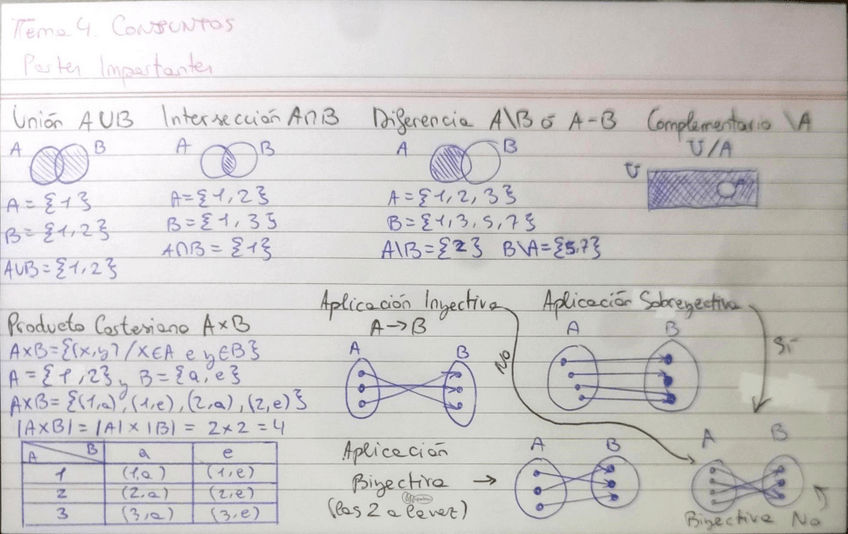 Tema 4. CONJUNTOS
Partes Importantes
Unión A∪B
A B
A={1}
B={1,2}
A∪B={1,2}
Intersección A∩B
A B
A={1,2}
B={1,3}
A∩B={1}
Diferencia A\B ó A-B
A B
A={1,2,3}
B={1,3,5,7}
A\B={2} B\A={5,7}
Complementario \A
U/A
U
A
Producto Cartesiano A×B
A×B={(x,y)/x∈A e y∈B}
A={1,2} y B={a,e}
A×B={(1,a),(1,e),(2,a),(2,e)}
|A×B|=|A|×|B|=2×2=4
A B a e
1 (1,a) (1,e)
2 (2,a) (2,e)
3 (3,a) (3,e)
Aplicación Inyectiva
A→B
A B
No
Aplicación Sobreyectiva
A B
Sí
Aplicación
Biyectiva →
(las 2 a la vez)
A B
A B
Biyectiva No